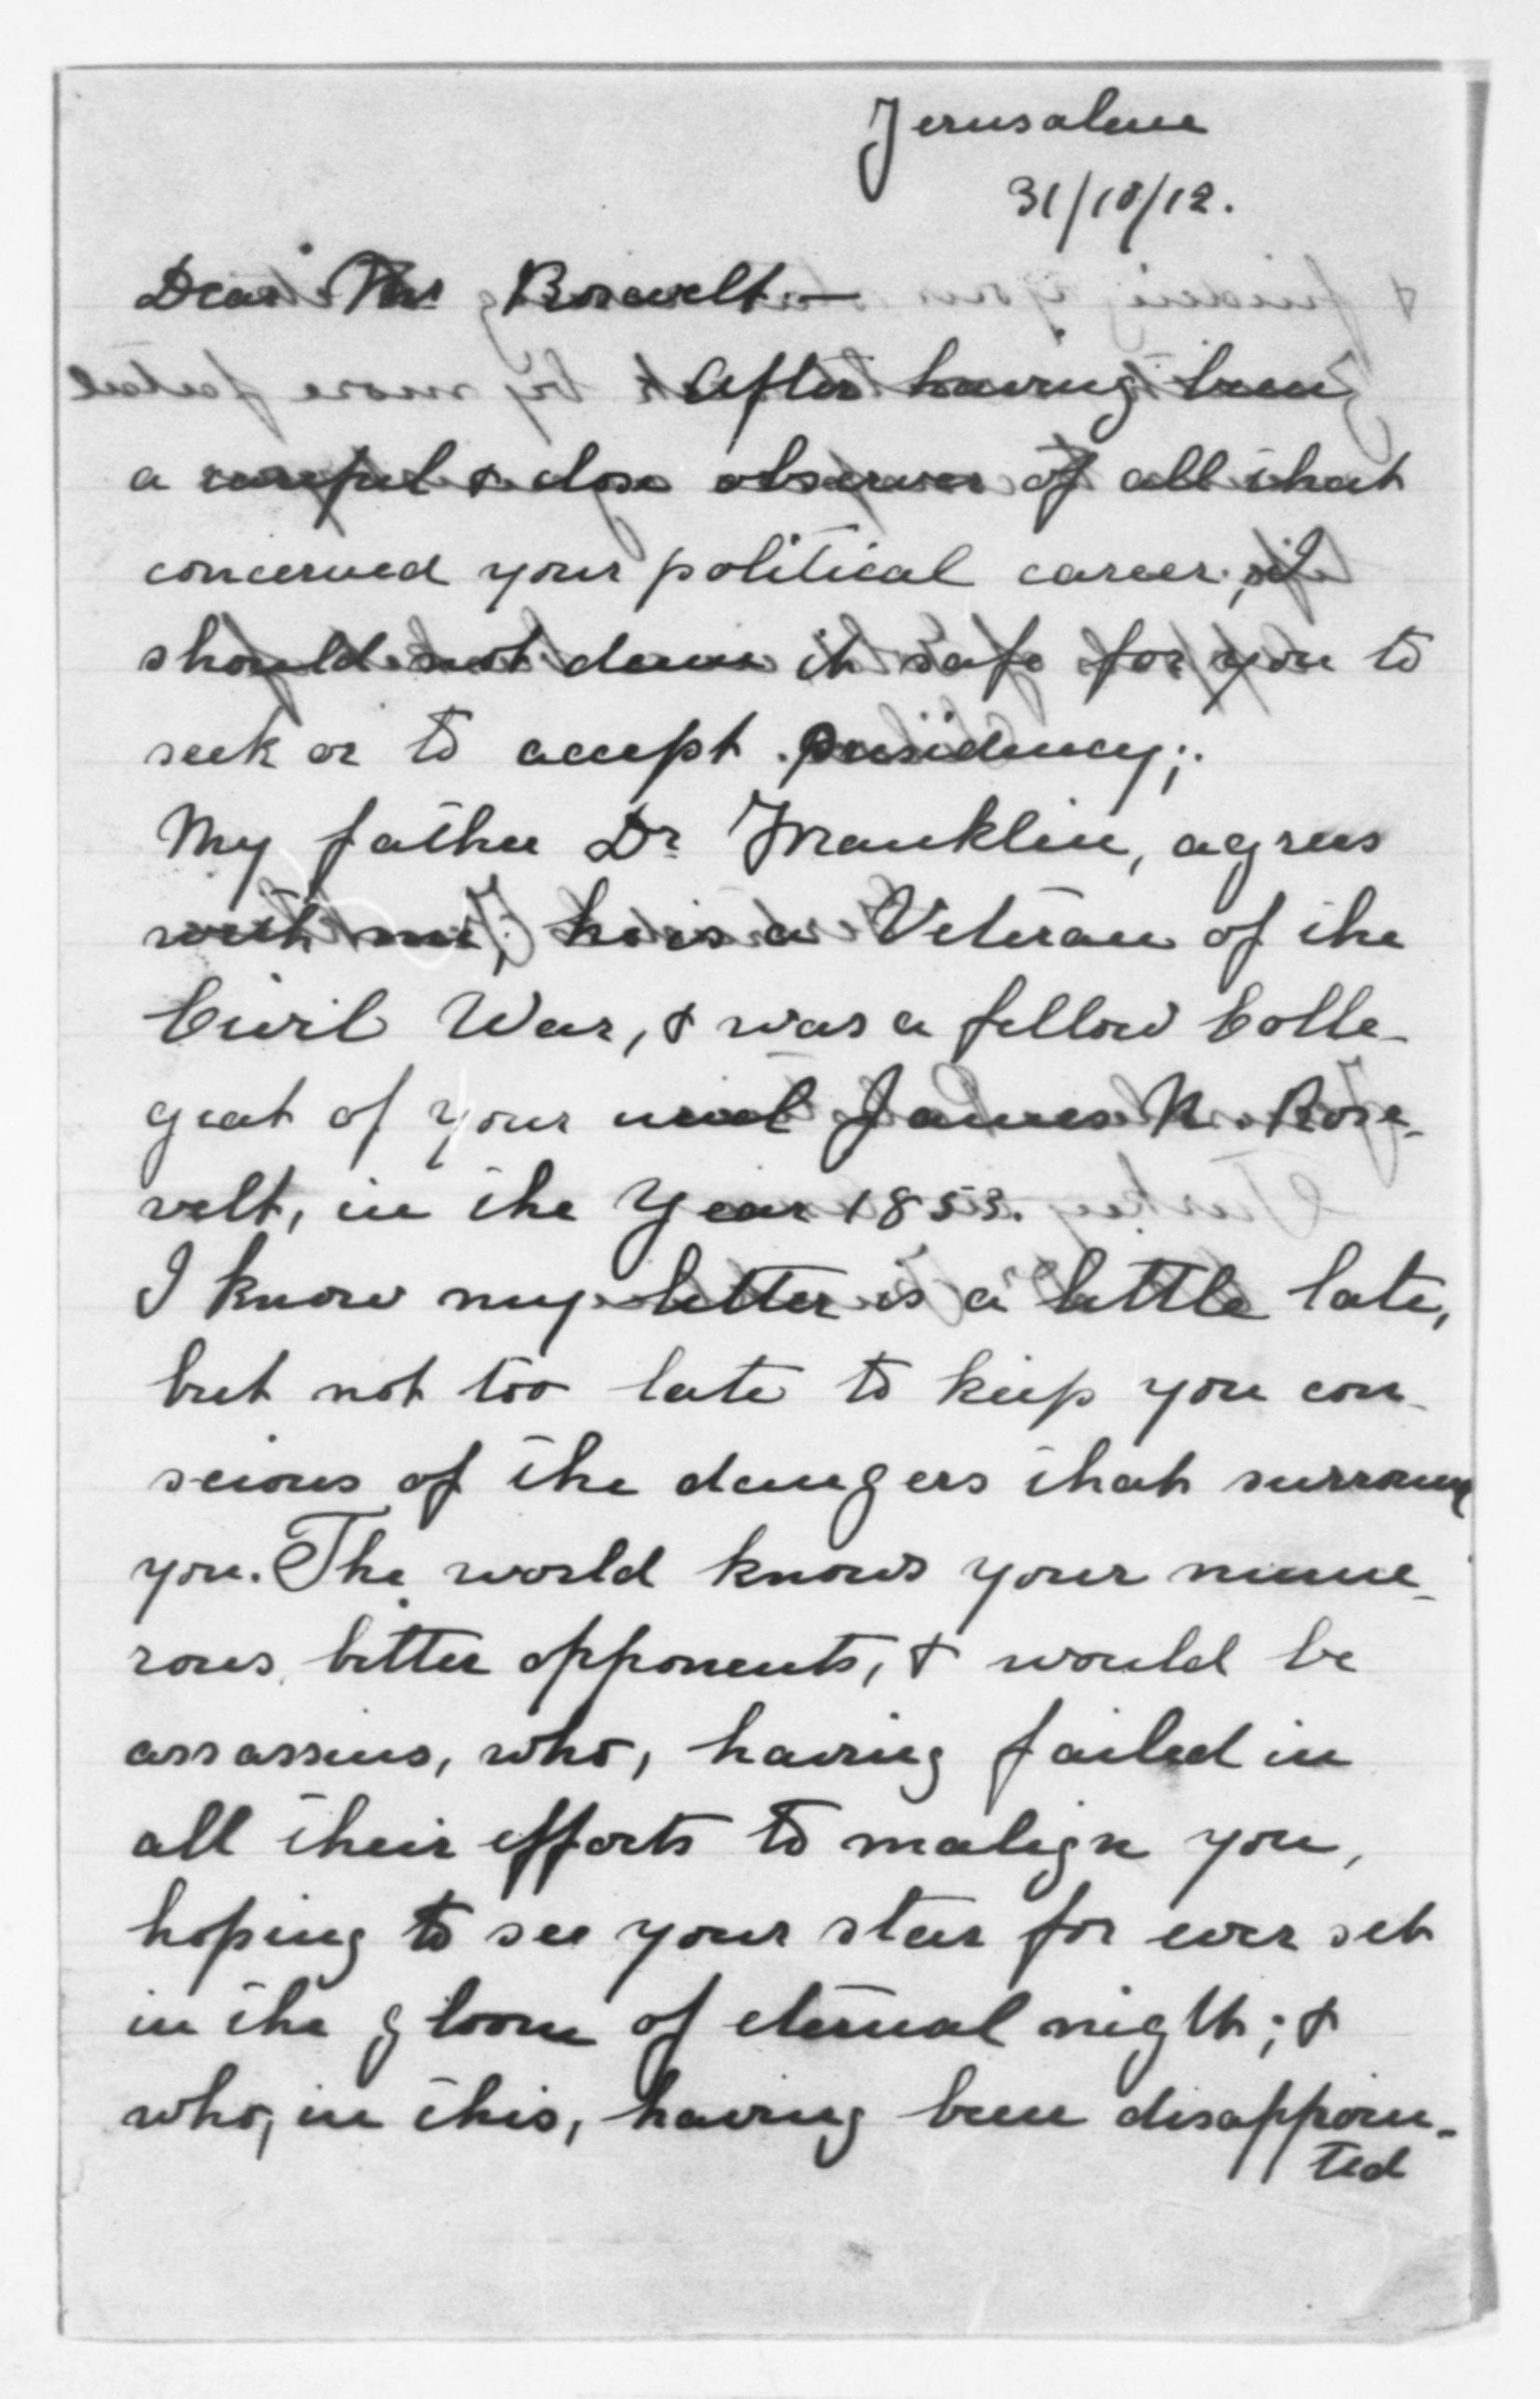 Jerusalem
31/10/12.
Dear Mr Rosevelt.—
After having been
a careful & close observer of all that
concerned your political career; I
should not deem it safe for you to
seek or to accept presidency;.
My father Dr Franklin, agrees
with me; he is a Veteran of the
Civil War, & was a fellow Colle-
geat of your uncel James N. Rose-
velt, in the Year 1853.
I know my letter is a little late,
but not too late to keep you con-
scious of the dangers that surround
you. The world knows your nume-
rous bitter opponents, & would be
assassins, who, having failed in
all their efforts to malign you,
hoping to see your star for ever set
in the gloom of eternal night; &
who, in this, having been disappoin-
ted